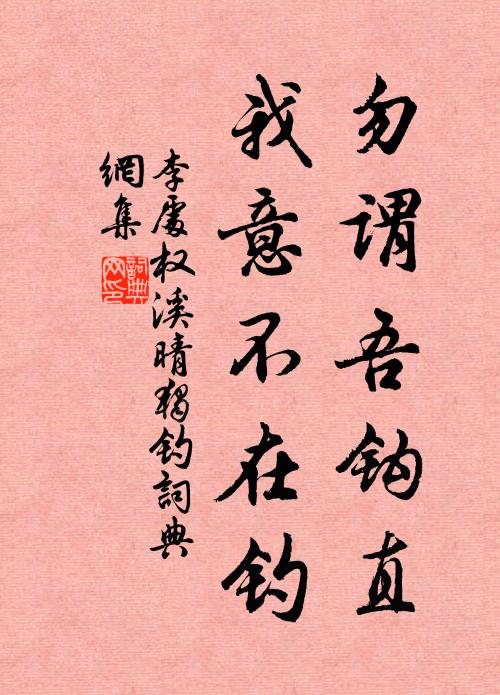 勿谓吾钩直
我意不在钓
李处权溪晴独钓词典
网集
词典网印